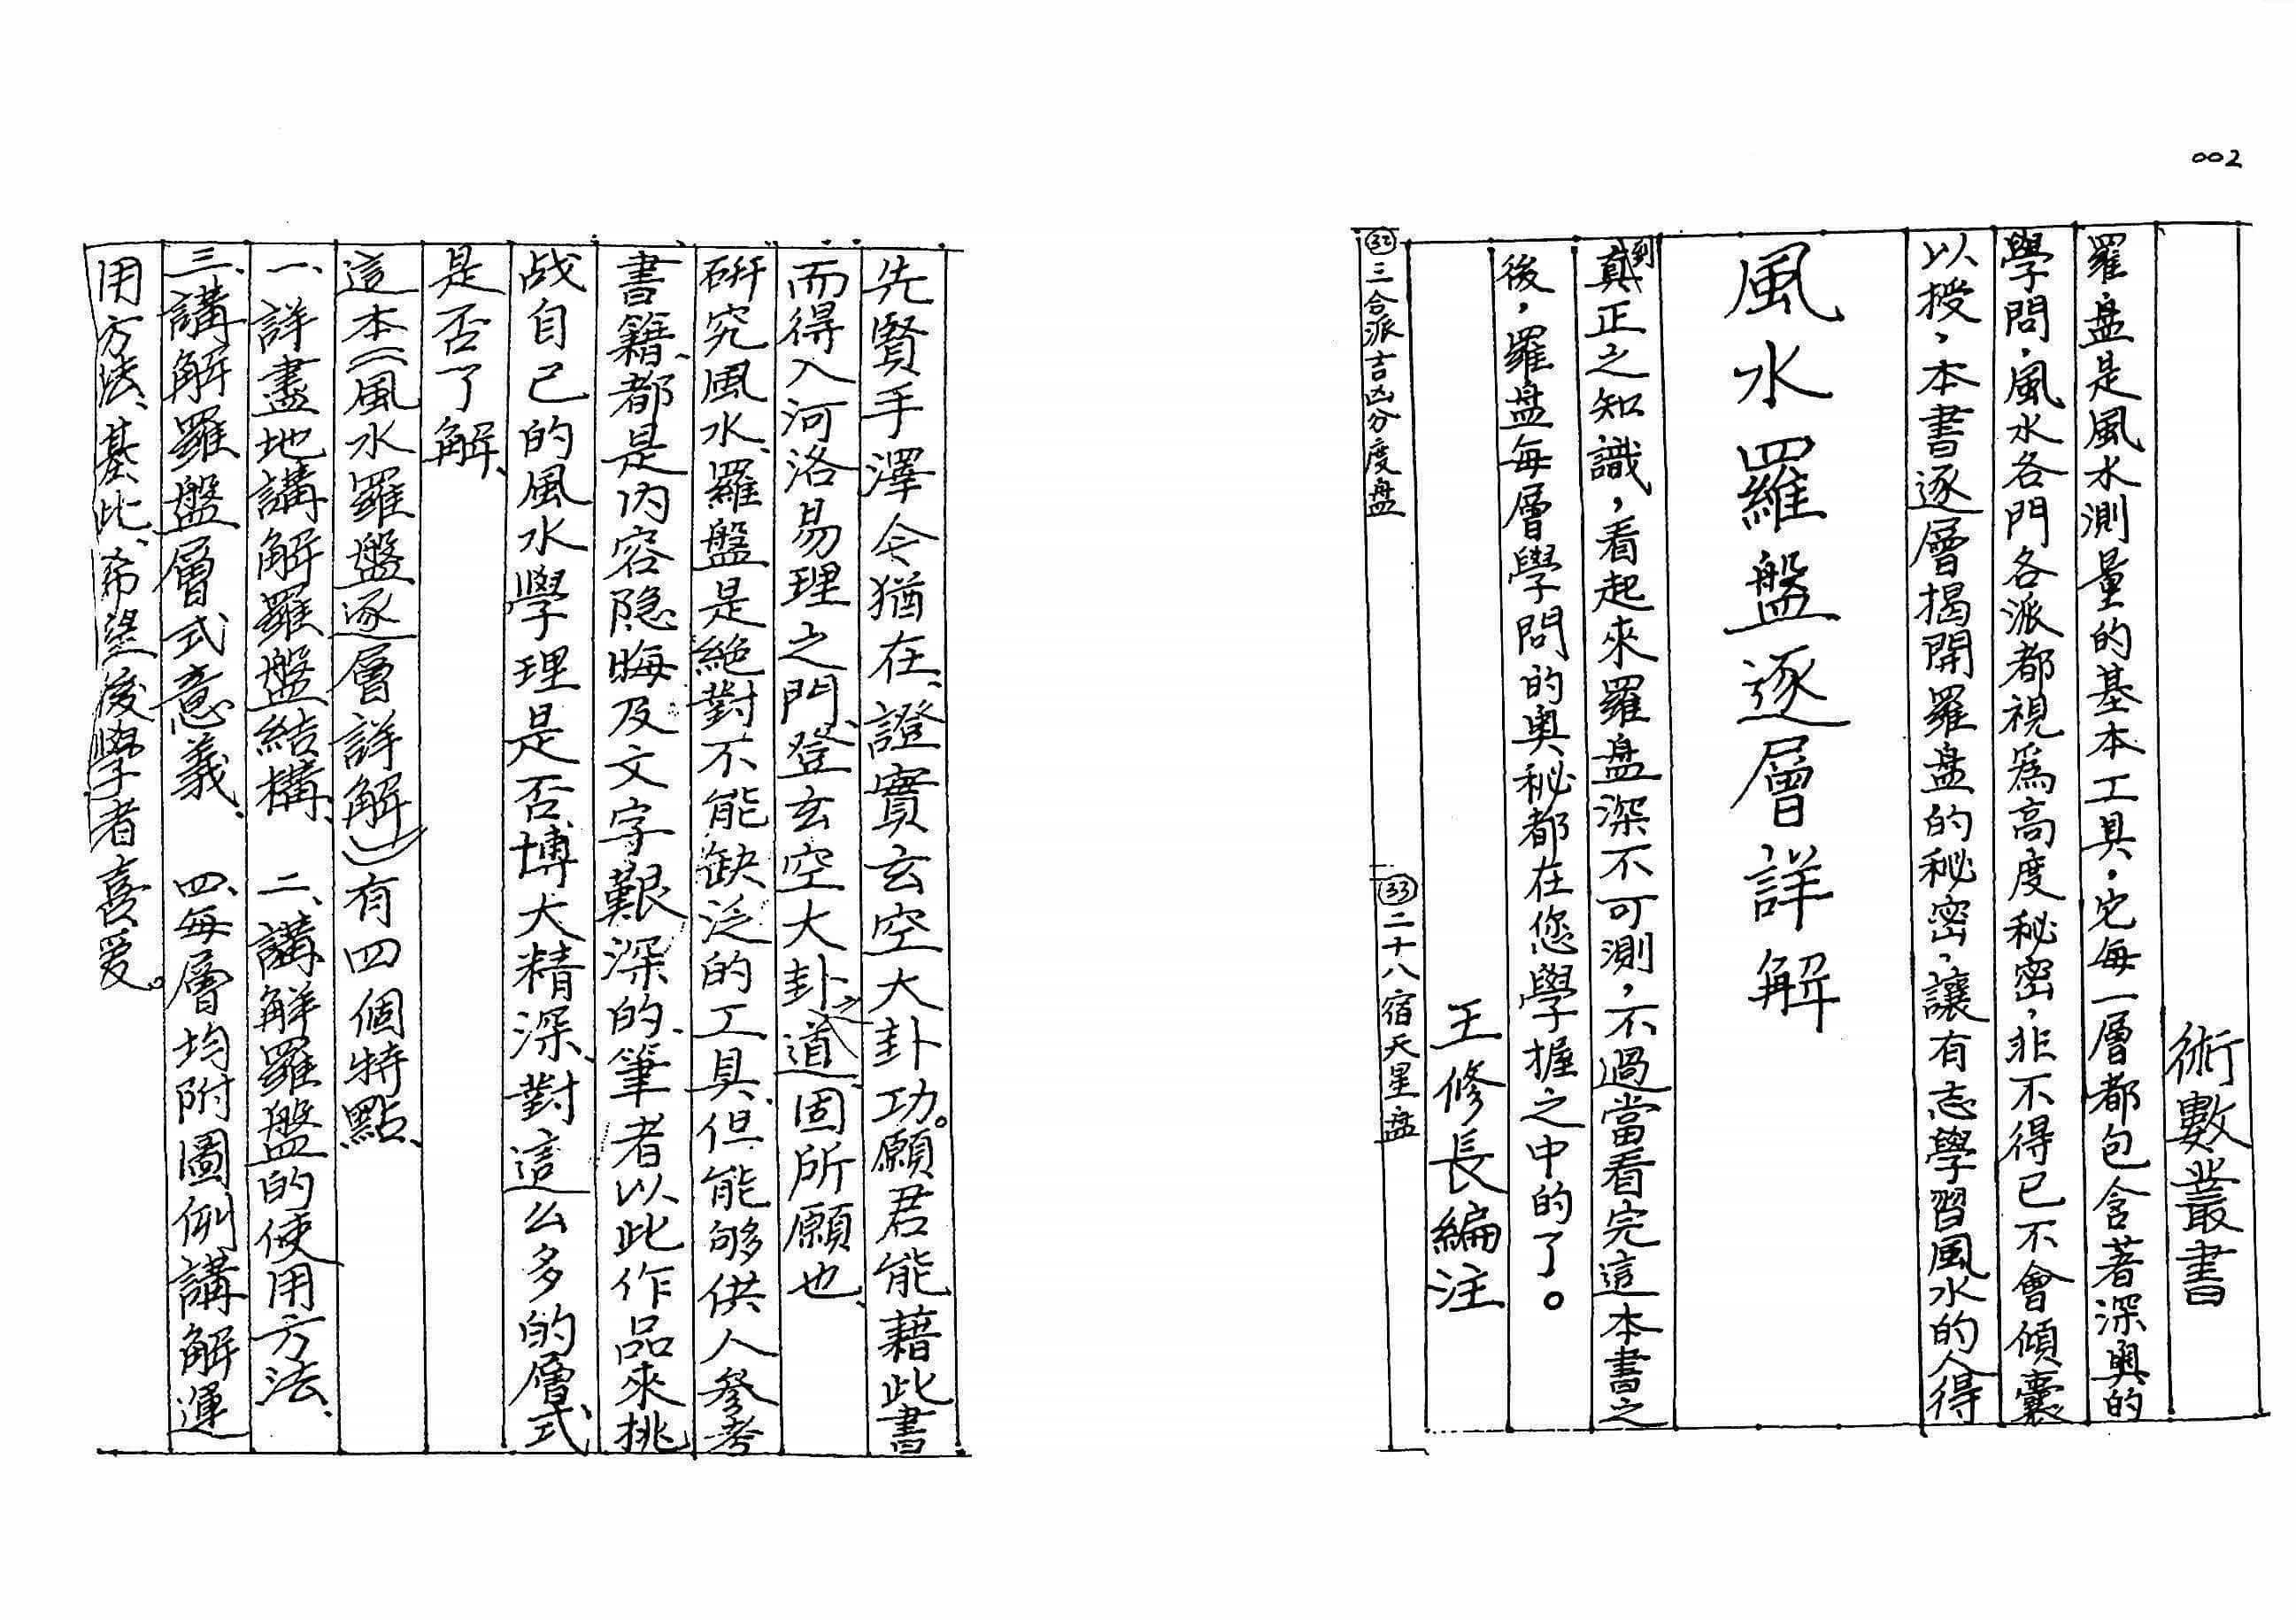 002
術數叢書
羅盘是風水測量的基本工具，它每一層都包含著深奥的
學問，風水各門各派都視爲高度秘密，非不得已不會傾囊
以授，本書逐層揭開羅盘的秘密，讓有志學習風水的人得
風水羅盤逐層詳解
到真正之知識，看起來羅盘深不可測，不過當看完這本書之
後，羅盘每層學問的奥秘都在您學握之中的了。
王修長編注
㉜三合派吉凶分度盘
㉝二十八宿天星盘
先賢手澤今猶在、證實玄空大卦功。願君能藉此書
而得入河洛易理之門、登玄空大卦之道、固所願也、
研究風水、羅盤是絶對不能缺泛的工具、但能够供人參考
書籍、都是内容隐晦及文字艱深的、筆者以此作品來挑
战自己的風水學理是否博大精深、對這么多的層式、
是否了解、
這本《風水羅盤逐層詳解》有四個特點、
一、詳盡地講解羅盤結構、 二、講解羅盤的使用方法、
三、講解羅盤層式意義、 四、每層均附圖例講解運
用方法、基此、希望廣學者喜爱。